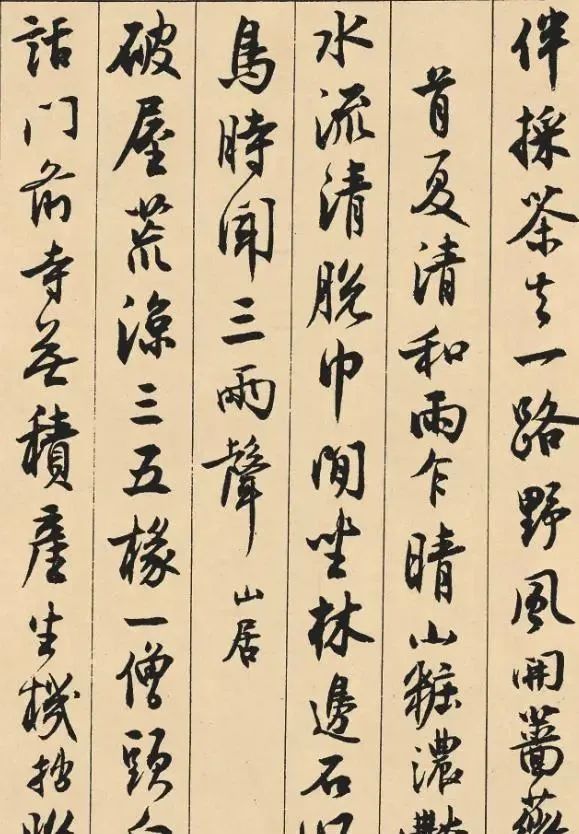 伴採茶去一路野風開薔薇
首夏清和雨乍晴山粧濃艷
水流清脫巾閒坐林邊石
鳥時聞三兩聲 山居
破屋荒涼三五椽一僧頭白
話門前寺無積產生機